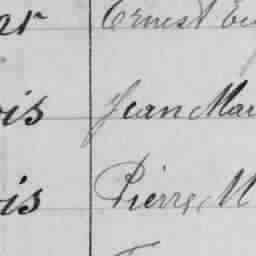 Ernest
ois Jean Mar
is Pierre M